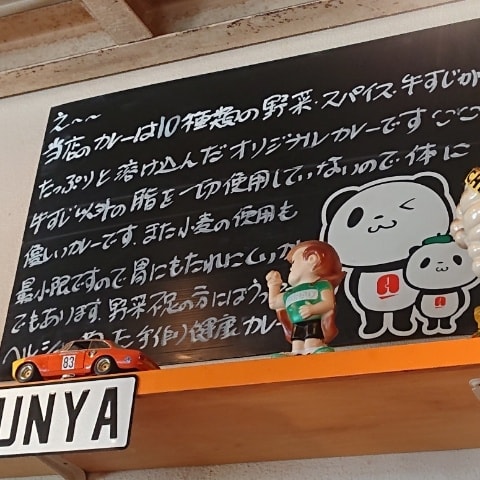 え〜〜
当店のカレーは10種類の野菜・スパイス・牛すじが
たっぷりと溶け込んだオリジナルカレーです
牛すじ以外の脂を一切使用していないので体に
優しいカレーです。また小麦の使用も
最小限ですので胃にもたれにくい
でもあります。野菜不足の方には
ヘルシー 手作り健康カレー
83
UNYA